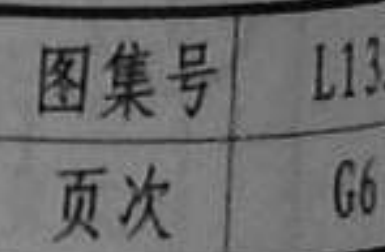 图集号 L13
页次 G6